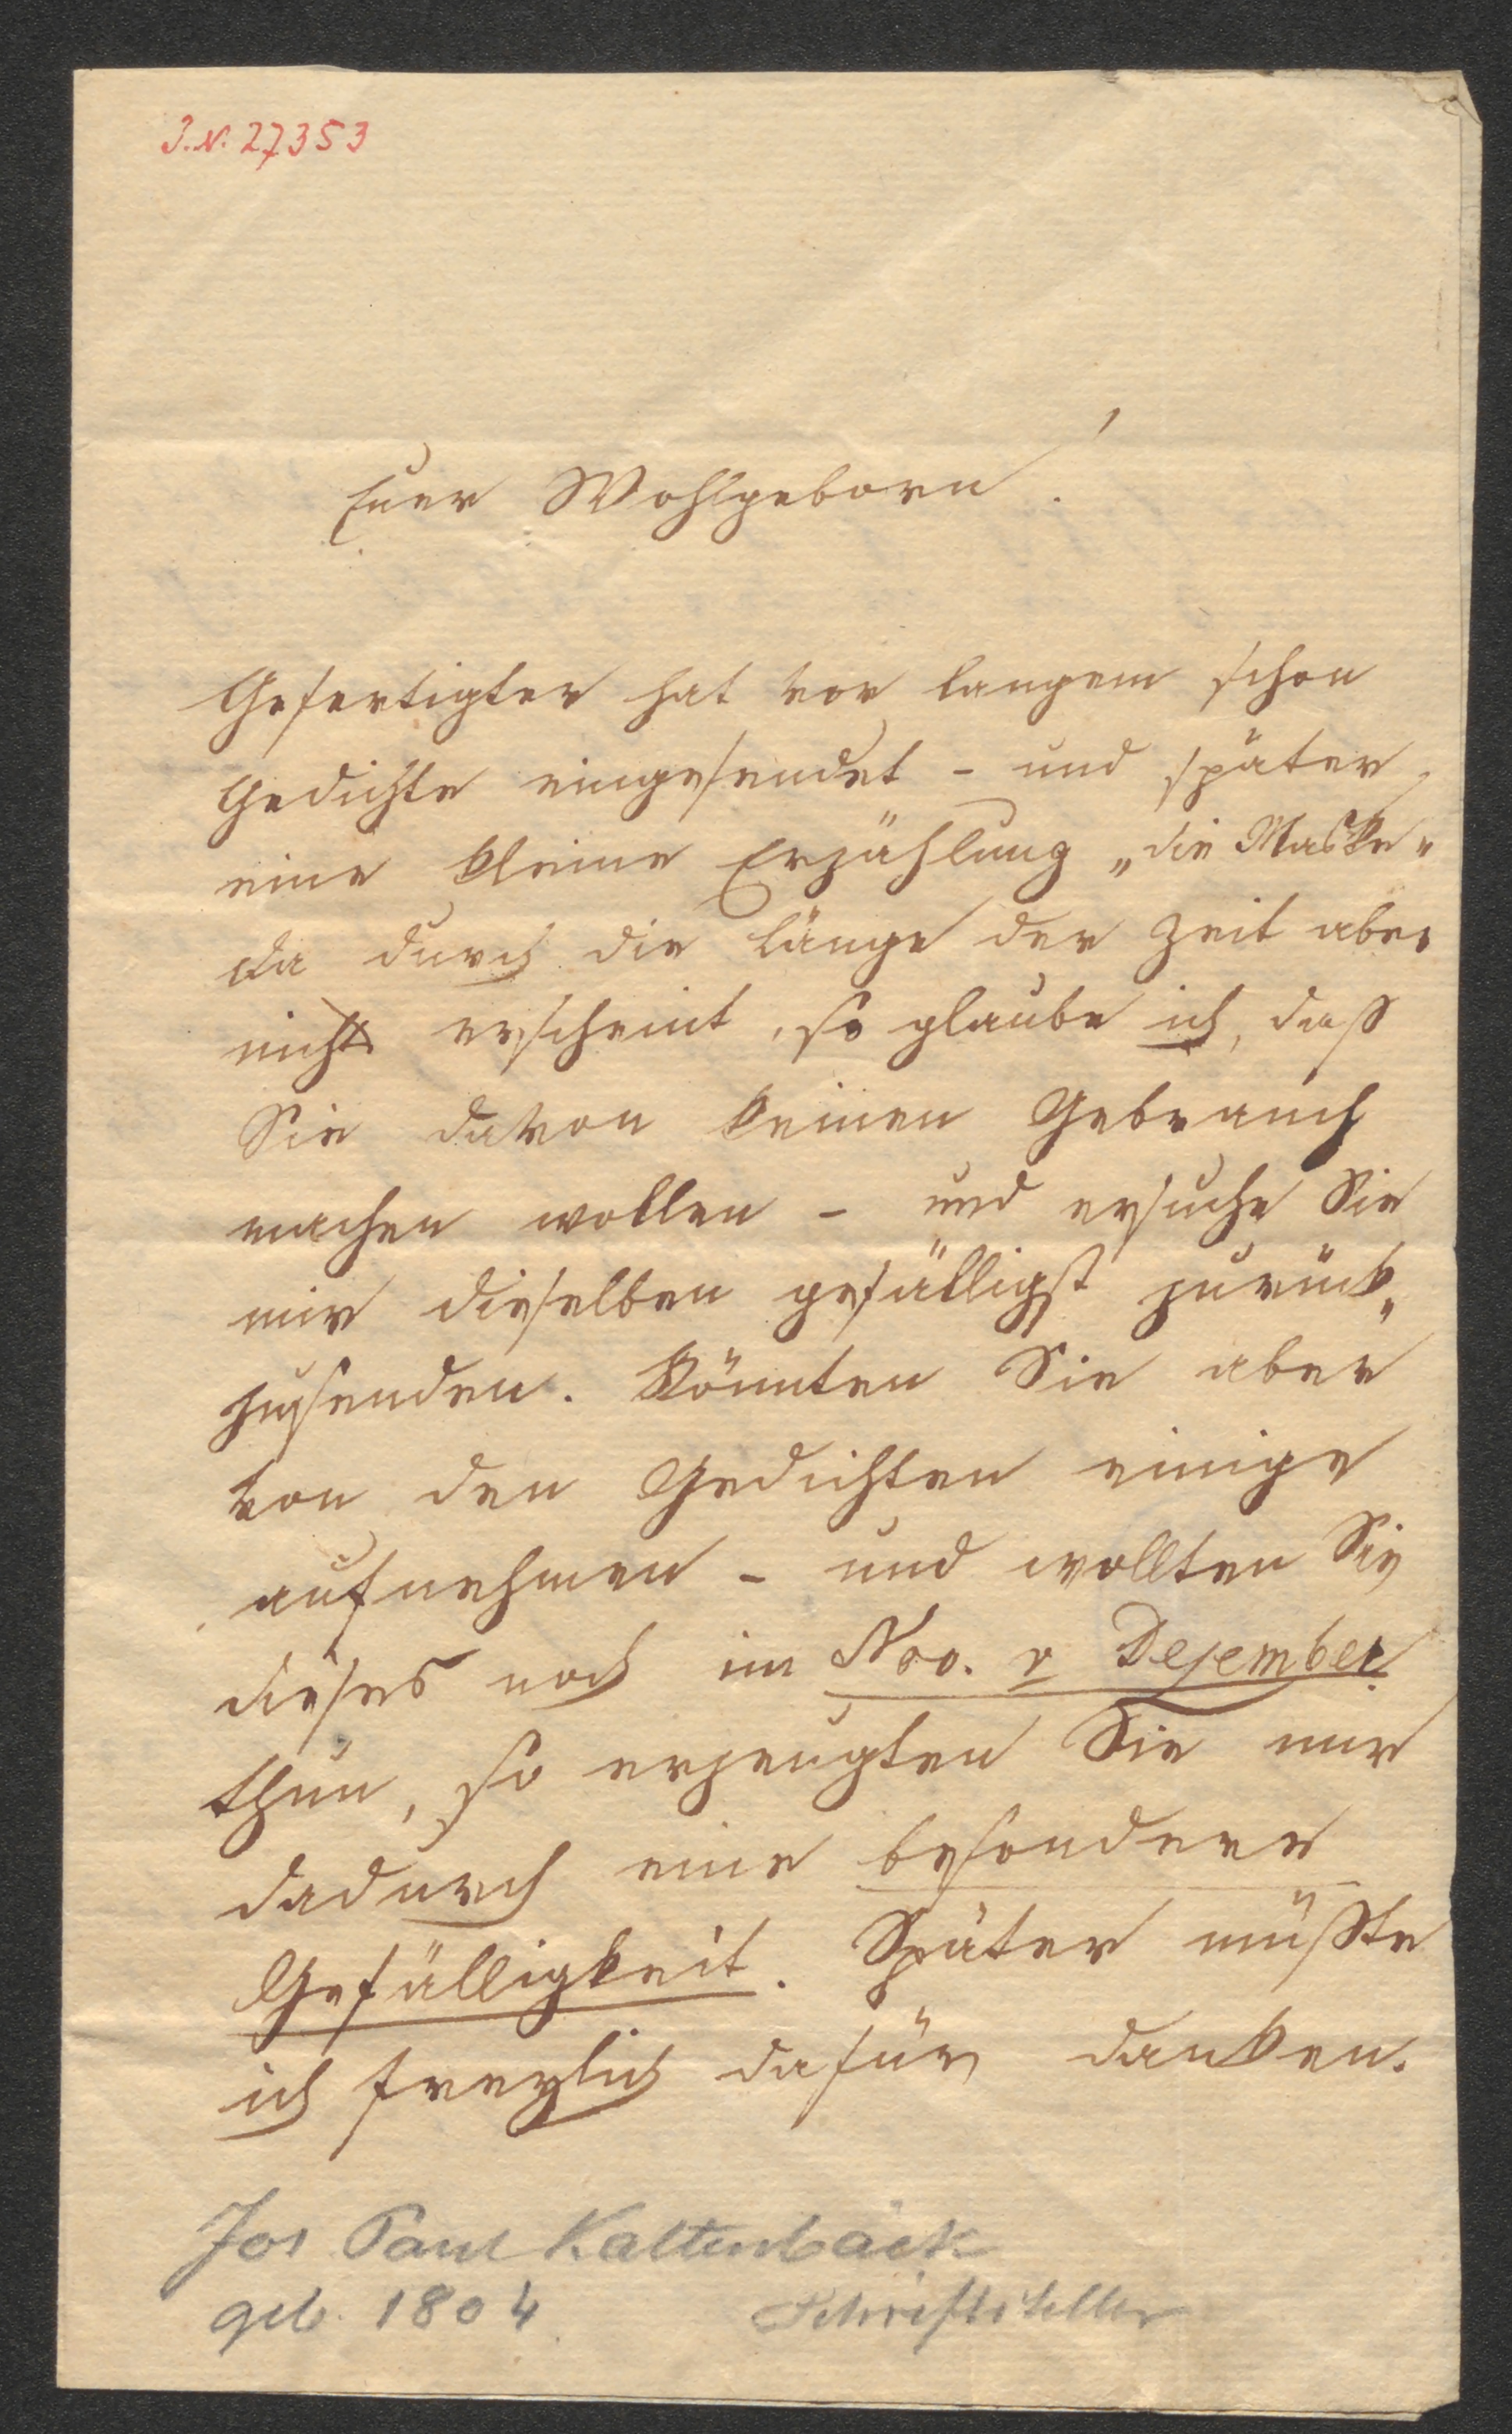 J.N. 27353
Euer Wohlgeborn!
Gefertigter hat vor langem schon
Gedichte eingesendet - und später
eine kleine Erzählung „die Maske"
da durch die Länge der Zeit aber
nichts erscheint, so glaube ich, daß
Sie davon keinen Gebrauch
machen wollen - und ersuche Sie
mir dieselben gefälligst zurück„
zusenden. Könnten Sie aber
von den Gedichten einige
aufnehmen - und wollten Sie
dieses noch im Nov. r Dezember
thun, so erzeugten Sie mir
dadurch eine besondere
Gefälligkeit. Später müßte
ich freylich dafür danken.
Jos Paul Kaltenbäck
geb. 1804 Schriftsteller